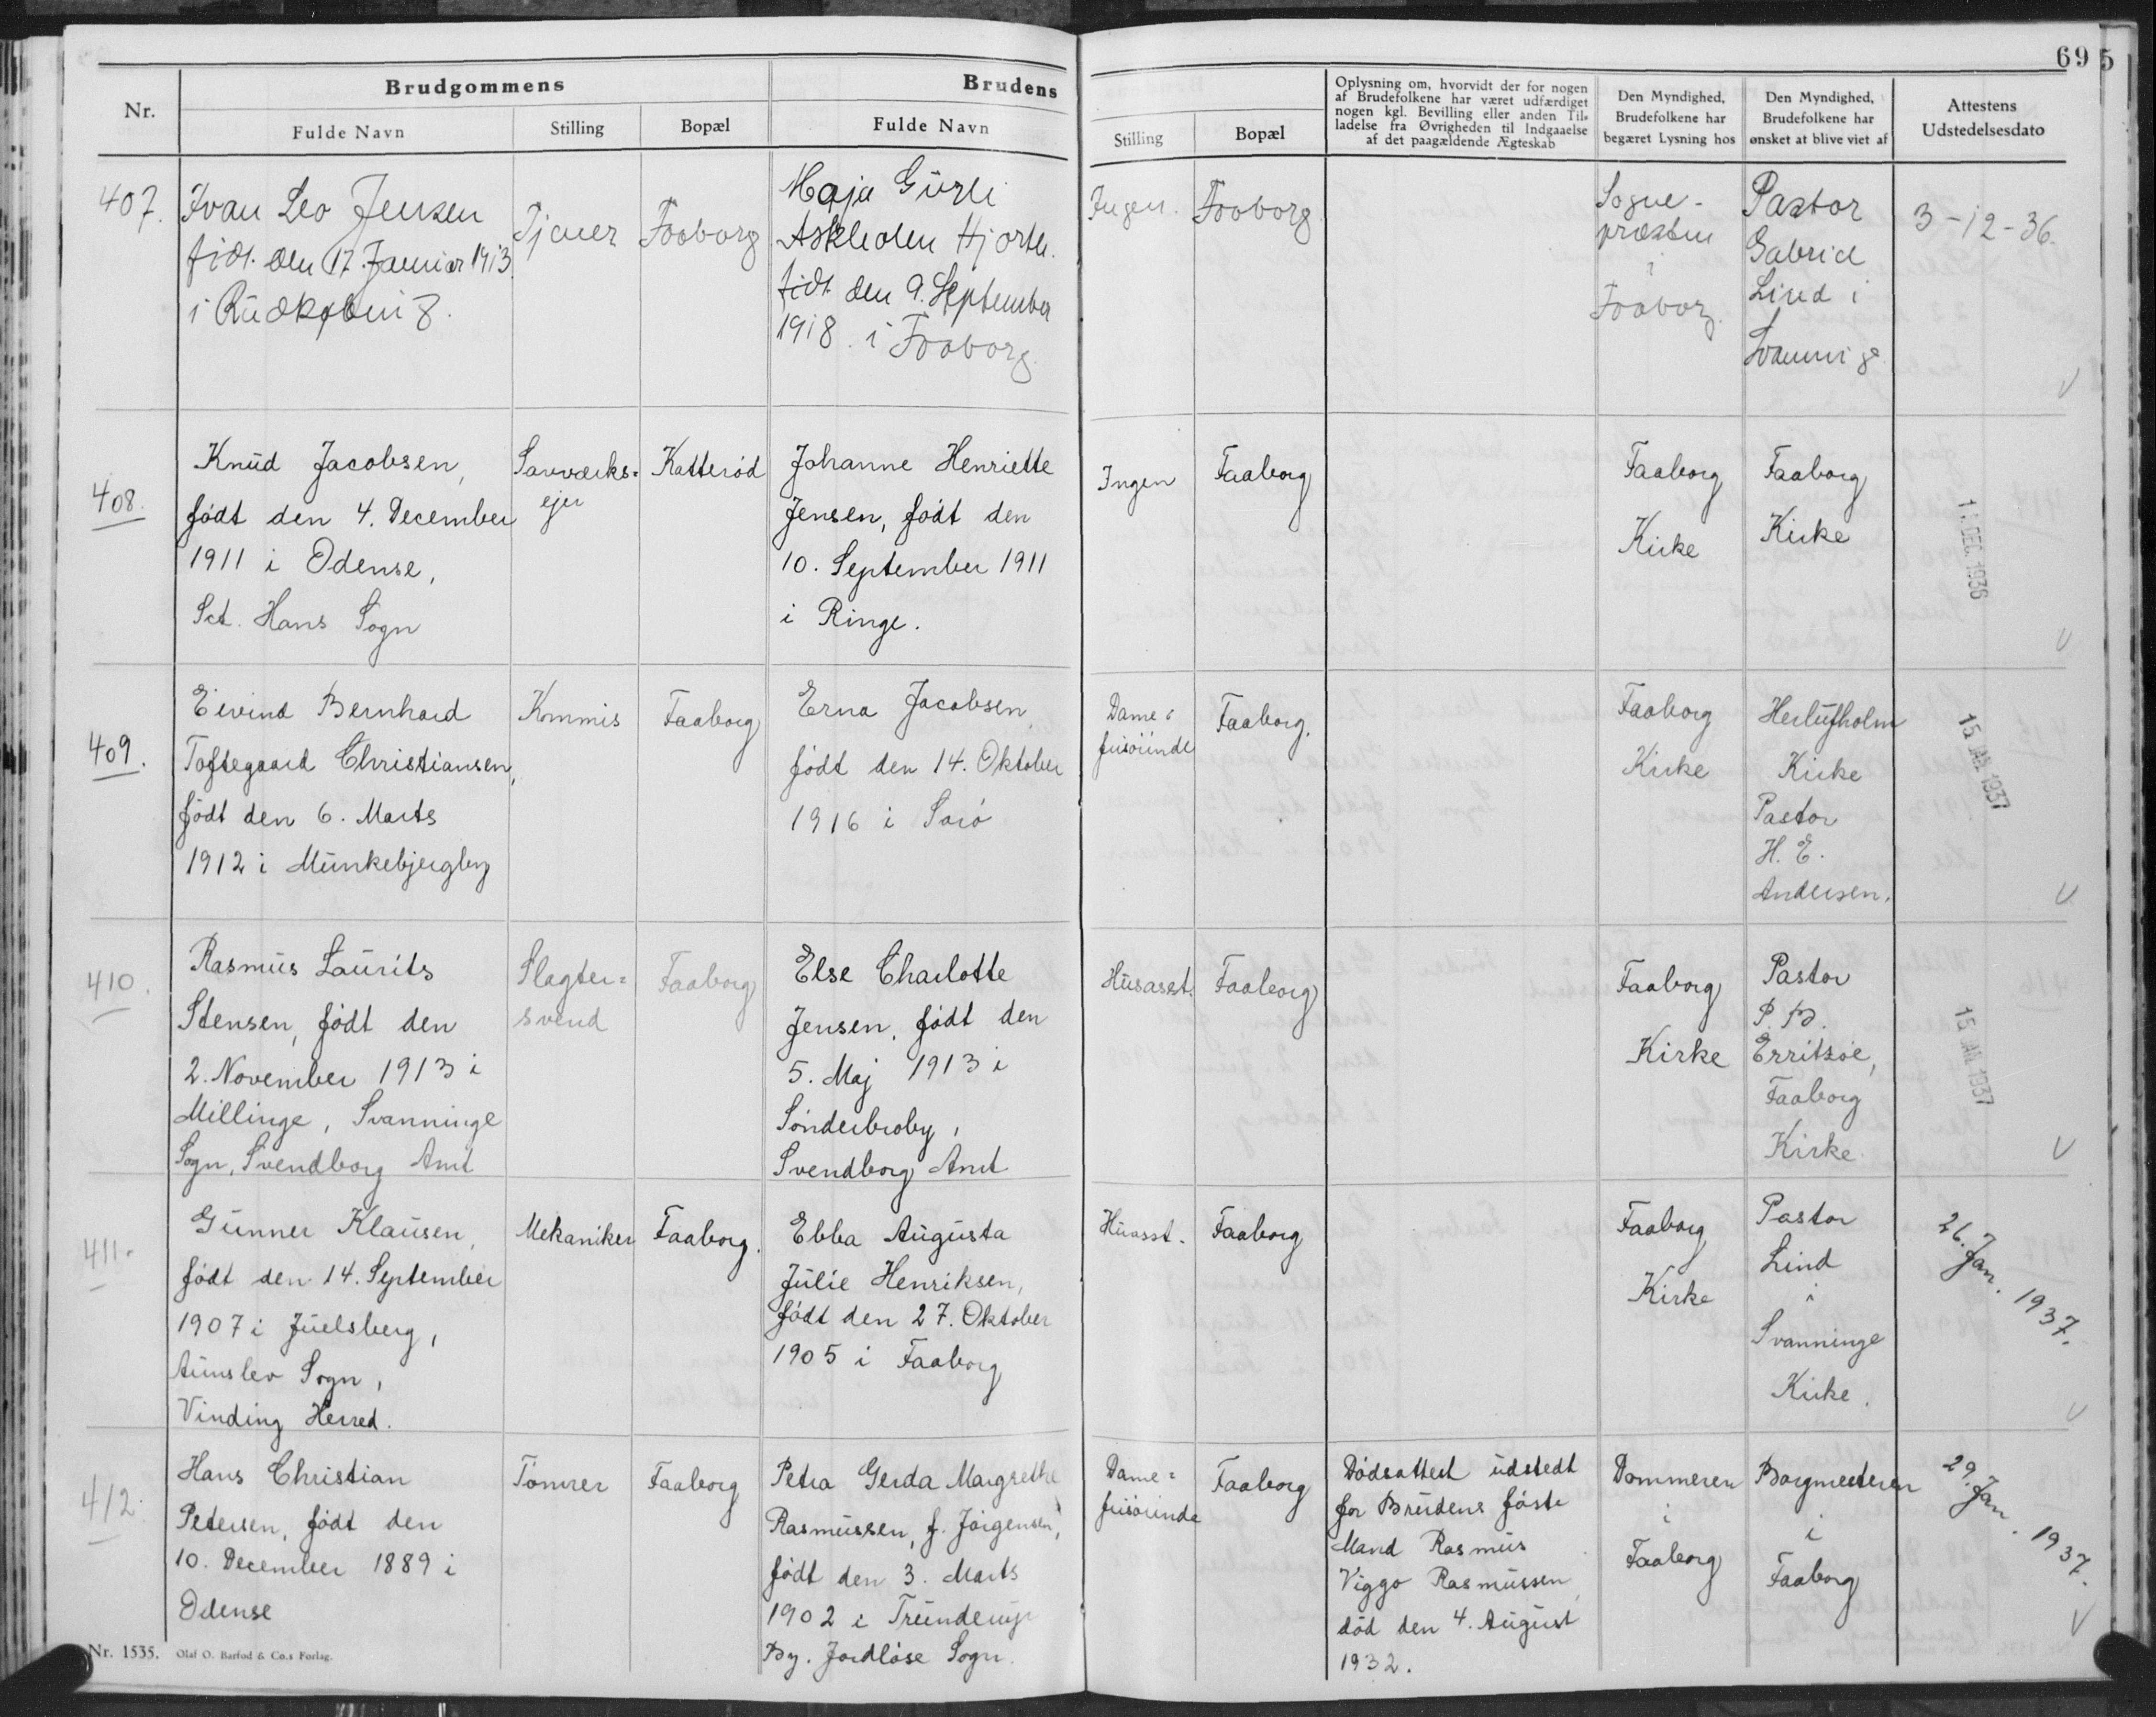 695
Brudgommens
Brudens
Nr.
Fulde Navn
Stilling
Bopæl
Fulde Navn
Stilling
Bopæl
Oplysning om, hvorvidt der for nogen
af Brudefolkene har været udfærdiget
nogen kgl. Bevilling eller anden Til-
ladelse fra Øvrigheden til Indgaaelse
af det paagældende Ægteskab
Den Myndighed,
Brudefolkene har
begæret Lysning hos
Den Myndighed,
Brudefolkene har
ønsket at blive viet af
Attestens
Udstedelsesdato
407.
Ivan Leo Jensen
født den 17. Januar 1913
i Rudkøbing.
Tjener
Faaborg
Maja Gurli
Askholm Hjorth.
født den 9. September
1918. i Faaborg.
Ingen.
Faaborg
Sogne-
præsten
i
Faaborg.
Pastor
Gabriel
Lind i
Svanninge
3-12-36.
408.
Knud Jacobsen,
født den 4. December
1911 i Odense,
Sct. Hans Sogn
Savværks=
ejer
Katterød
Johanne Henriette
Jensen, født den
10. September 1911
i Ringe.
Ingen
Faaborg
Faaborg
Kirke
Faaborg
Kirke
11. DEC. 1936
409.
Eivind Bernhard
Toftegaard Christiansen,
født den 6. Marts
1912 i Munkebjergby
Kommis
Faaborg
Erna Jacobsen,
født den 14. Oktober
1916 i Sorø
Dame=
frisørinde
Faaborg.
Faaborg
Kirke
Herlufholm
Kirke
Pastor
H. E.
Andersen.
15 JAN. 1937
410.
Rasmus Laurits
Stensen, født den
2. November 1913 i
Millinge, Svanninge
Sogn, Svendborg Amt
Slagter=
svend
Faaborg
Else Charlotte
Jensen, født den
5. Maj 1913 i
Sønderbroby,
Svendborg Amt
Husasst.
Faaborg
Faaborg
Kirke
Pastor
P. B.
Erritsøe,
Faaborg
Kirke.
15 JAN. 1937
411.
Gunner Klausen,
født den 14. September
1907 i Juelsberg,
Aunslev Sogn,
Vinding Herred.
Mekaniker
Faaborg.
Ebba Augusta
Julie Henriksen,
født den 27. Oktober
1905 i Faaborg
Husasst.
Faaborg
Faaborg
Kirke
Pastor
Lind
i
Svanninge
Kirke.
26. Jan. 1937.
412.
Hans Christian
Petersen, født den
10. December 1889 i
Odense
Tømrer
Faaborg
Petra Gerda Margrethe
Rasmussen, f. Jørgensen,
født den 3. Marts
1902 i Trunderup
By. Jordløse Sogn.
Dame=
frisørinde
Faaborg
Dødsattest udstedt
for Brudens første
Mand Rasmus
Viggo Rasmussen,
død den 4. August
1932.
Dommeren
i
Faaborg
Borgmesteren
i
Faaborg
29. Jan. 1937.
Nr. 1535. Olaf O. Barfod & Co.s Forlag.